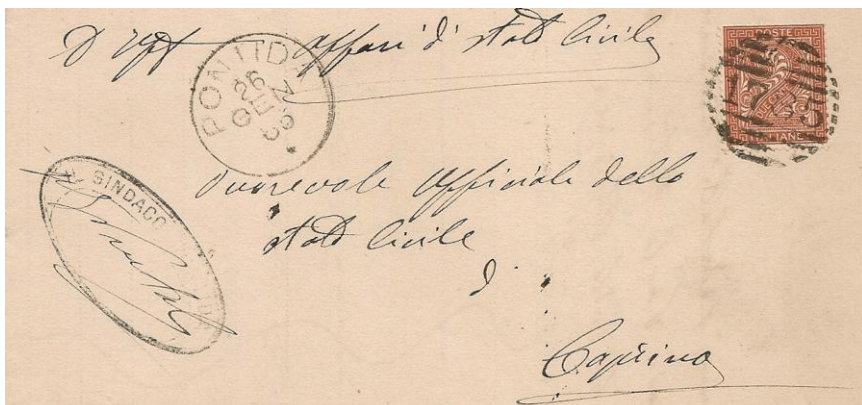 D'Uff affari di stato Civile
PONTIDA
26
GEN
POSTE
ITALIANE
SINDACO
Onorevole Ufficiale dello
stato Civile
di
Caprino